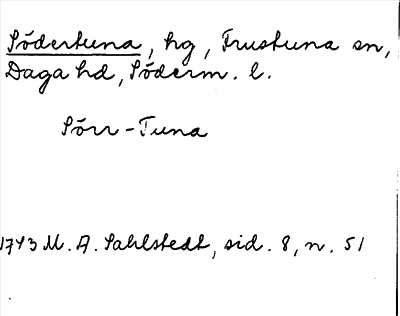 Södertuna, hg, Frustuna sn,
Daga hd, Söderm. l.
Sörr-Tuna
1743 M. A. Sahlstedt, sid. 8, n. 51